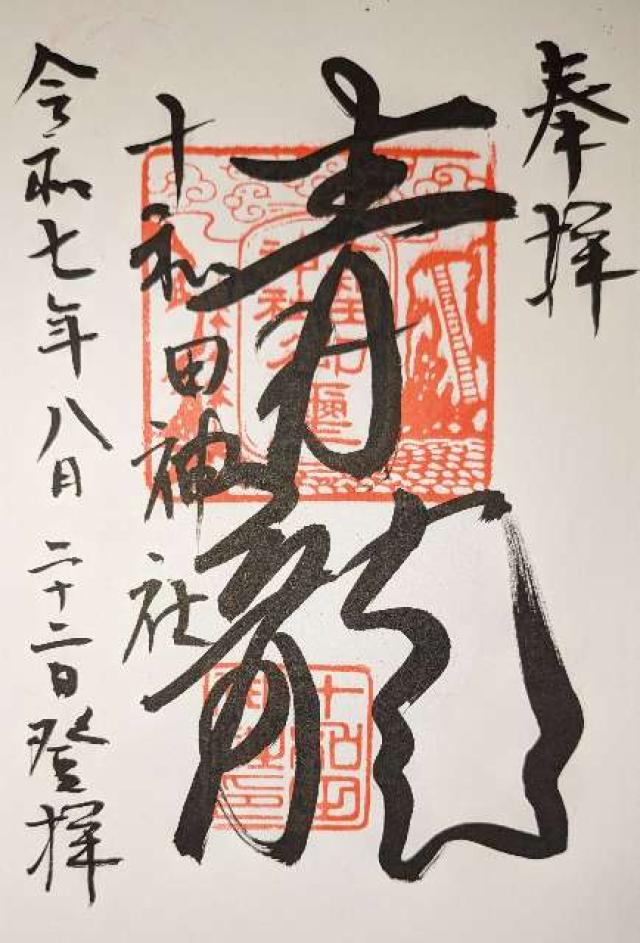 奉拝
青龍
十和田神社
令和七年八月二十二日登拝
十和田